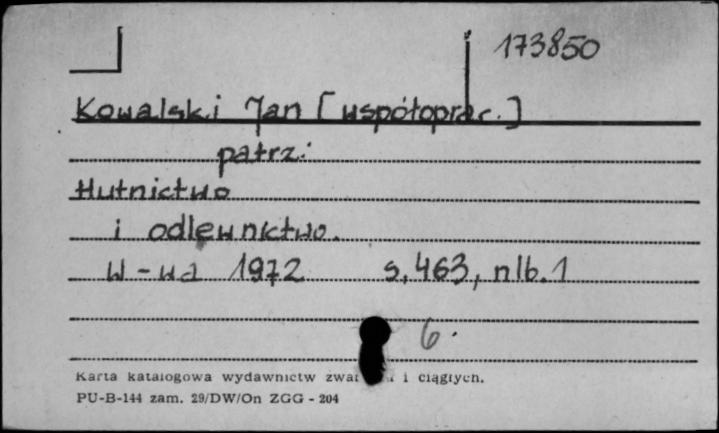 173850
Kowalski Jan [współoprac.]
patrz:
Hutnictwo
i odlewnictwo.
W-wa 1972 s. 463, nlb. 1
6.
Karta katalogowa wydawnictw i ciągłych.
PU-B-144 zam. 29/DW/On ZGG - 204